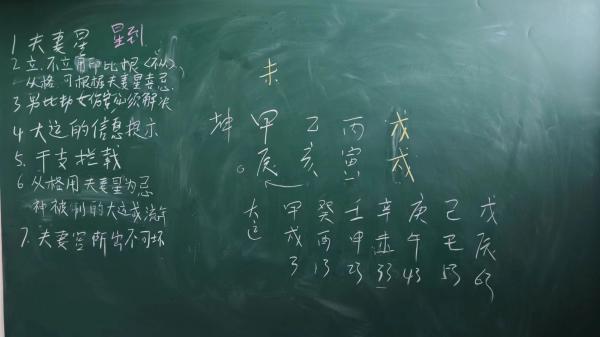 1 夫妻星 星到
2 立.不立用印比根
从格 可根据夫妻星喜忌.
3 男比劫女伤官必须解决
4 大运的信息提示
5. 干支拦截
6 从格用夫妻星为忌
神被制的大运或流年
7. 夫妻宫所出不可坏
未
坤 甲 乙 丙 戊
辰 亥 寅 戌
大运 甲 癸 壬 辛 庚 己 戊
戌 酉 申 未 午 巳 辰
3 13 23 33 43 53 63